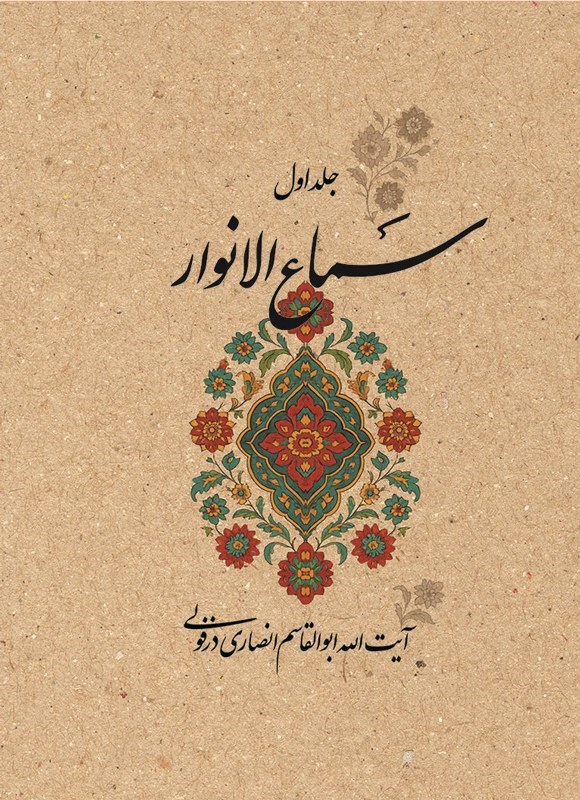 جلد اول
سَماع الانوار
آیت الله ابوالقاسم انصاری دزفولی